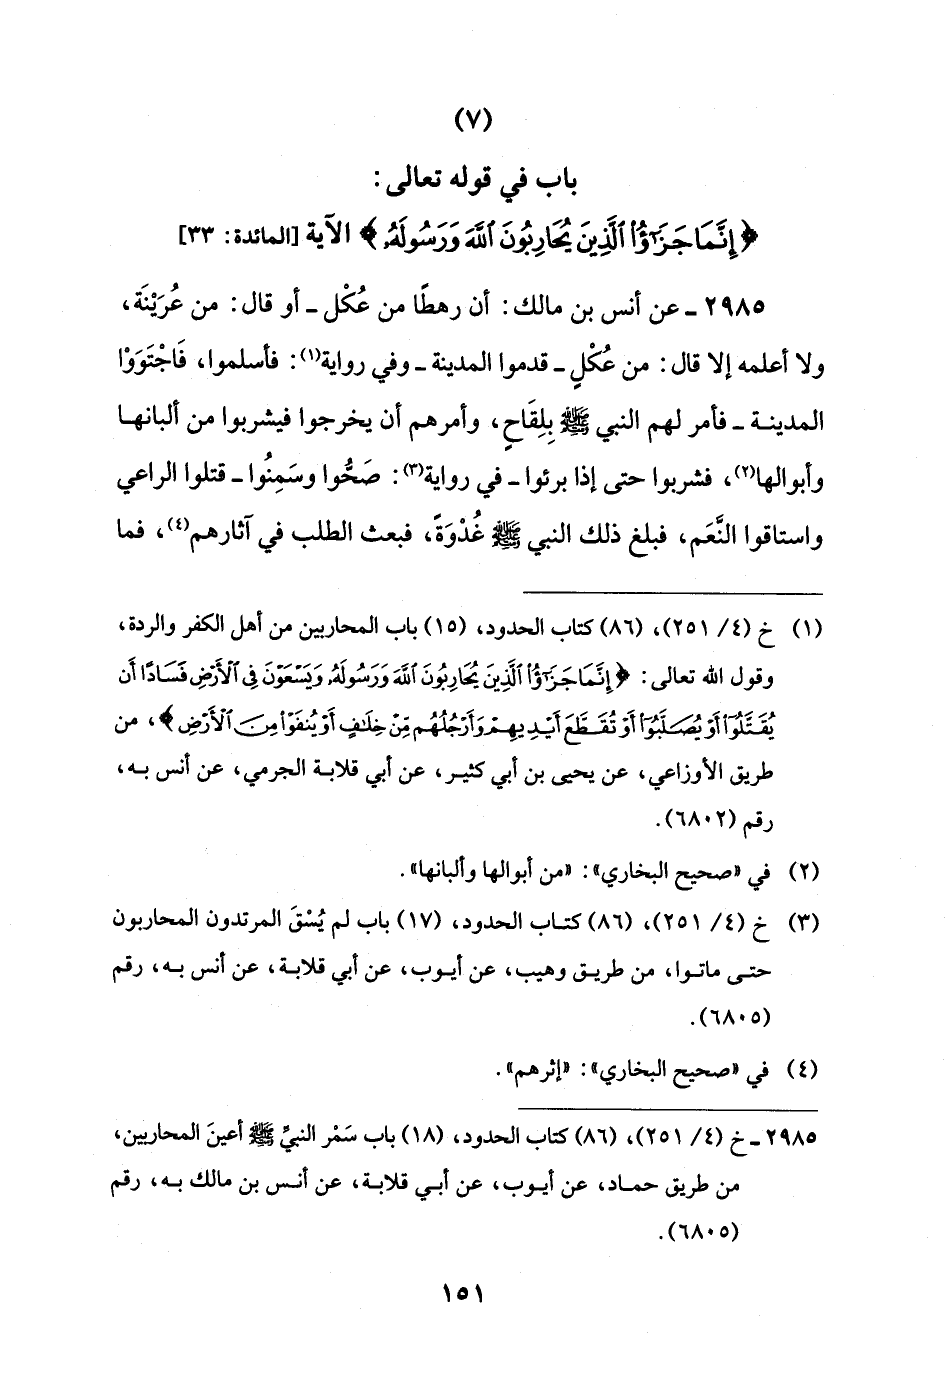 (٧)
باب في قوله تعالى:
﴿إِنَّمَا جَزَٰٓؤُا۟ ٱلَّذِينَ يُحَارِبُونَ ٱللَّهَ وَرَسُولَهُۥ﴾ الآية [المائدة: ٣٣]
٢٩٨٥ ـ عن أنس بن مالك: أن رهطًا من عُكْل ـ أو قال: من عُرَيْنَة،
ولا أعلمه إلا قال: من عُكْلٍ ـ قدموا المدينة ـ وفي رواية(١): فأسلموا، فَاجْتَوَوْا
المدينـة ـ فأمر لهم النبي ﷺ بِلِقَاحٍ، وأمرهم أن يخرجوا فيشربوا من ألبانهـا
وأبوالها(٢)، فشربوا حتى إذا برئوا ـ في رواية(٣): صَحُّوا وسَمِنُوا ـ قتلوا الراعي
واستاقوا النَّعَم، فبلغ ذلك النبي ﷺ غُدْوَةً، فبعث الطلب في آثارهم(٤)، فما
(١) خ (٤/ ٢٥١)، (٨٦) كتاب الحدود، (١٥) باب المحاربين من أهل الكفر والردة،
وقول الله تعالى: ﴿إِنَّمَا جَزَٰٓؤُا۟ ٱلَّذِينَ يُحَارِبُونَ ٱللَّهَ وَرَسُولَهُۥ وَيَسْعَوْنَ فِى ٱلْأَرْضِ فَسَادًا أَن
يُقَتَّلُوٓا۟ أَوْ يُصَلَّبُوٓا۟ أَوْ تُقَطَّعَ أَيْدِيهِمْ وَأَرْجُلُهُم مِّنْ خِلَٰفٍ أَوْ يُنفَوْا۟ مِنَ ٱلْأَرْضِ﴾، من
طريق الأوزاعي، عن يحيى بن أبي كثيـر، عن أبي قلابة الجرمي، عن أنس بـه،
رقم (٦٨٠٢).
(٢) في «صحيح البخاري»: «من أبوالها وألبانها».
(٣) خ (٤/ ٢٥١)، (٨٦) كتـاب الحدود، (١٧) باب لم يُسْقَ المرتدون المحاربون
حتـى ماتـوا، من طريـق وهيب، عن أيـوب، عن أبي قلابـة، عن أنس بـه، رقم
(٦٨٠٥).
(٤) في «صحيح البخاري»: «إثرهم».
٢٩٨٥ ـ خ (٤/ ٢٥١)، (٨٦) كتاب الحدود، (١٨) باب سَمْر النبيِّ ﷺ أعينَ المحاربين،
من طريق حمـاد، عن أيـوب، عن أبـي قلابـة، عن أنـس بن مالك بـه، رقم
(٦٨٠٥).
١٥١